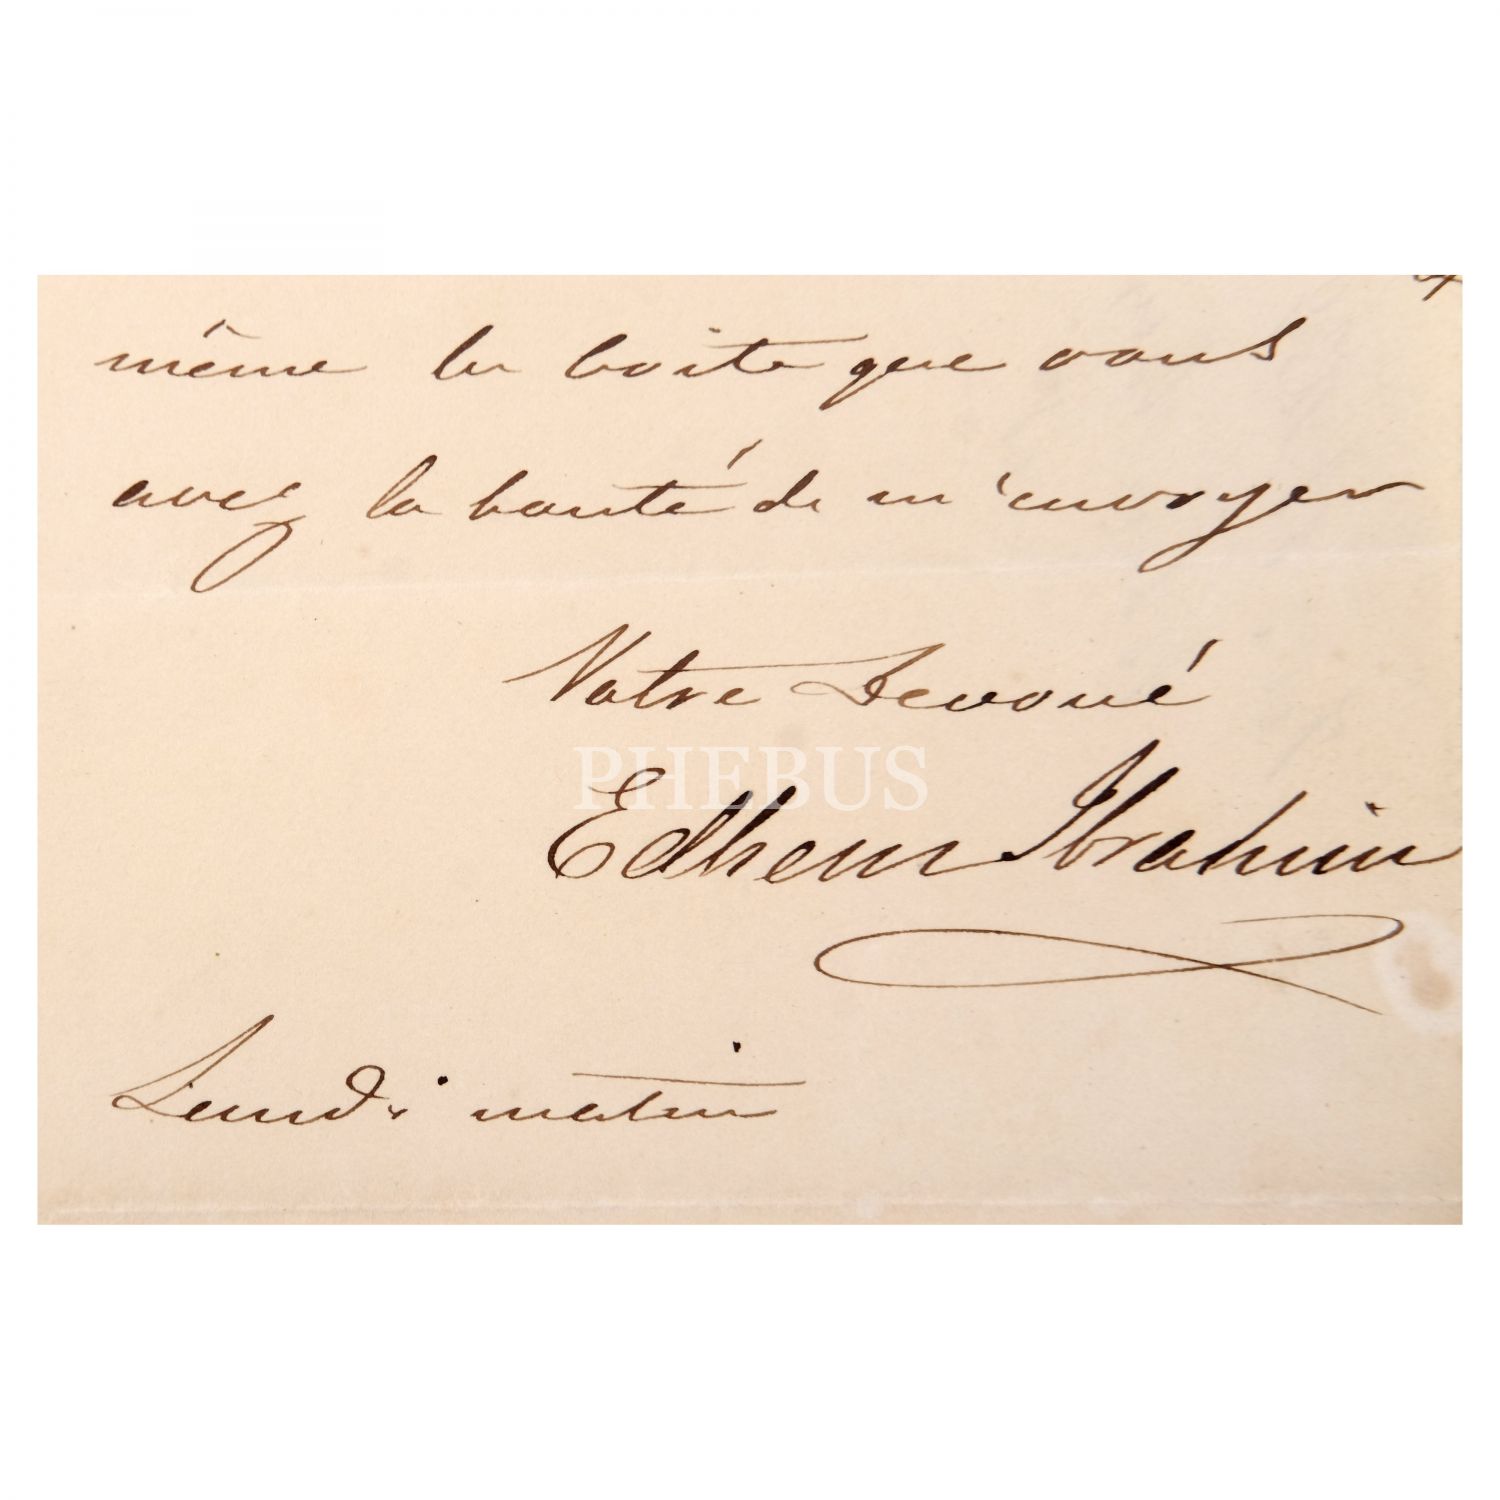 même la boîte que vous
avez la bonté de m'envoyer
Votre Devoué
PHEBUS
Edhem Ibrahim
Lundi matin